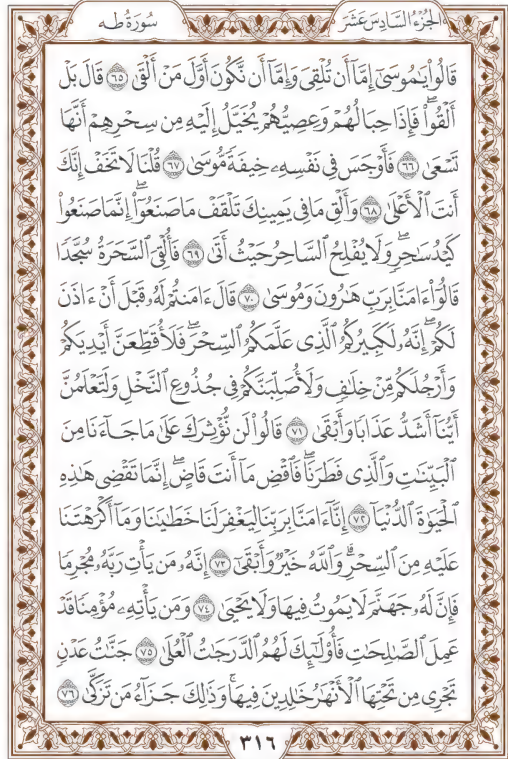 الجُزْءُ السَّادِسَ عَشَرَ
سُورَةُ طه
قَالُواْ يَٰمُوسَىٰٓ إِمَّآ أَن تُلْقِيَ وَإِمَّآ أَن نَّكُونَ أَوَّلَ مَنْ أَلْقَىٰ ٦٥ قَالَ بَلْ
أَلْقُواْۖ فَإِذَا حِبَالُهُمْ وَعِصِيُّهُمْ يُخَيَّلُ إِلَيْهِ مِن سِحْرِهِمْ أَنَّهَا
تَسْعَىٰ ٦٦ فَأَوْجَسَ فِي نَفْسِهِۦ خِيفَةً مُّوسَىٰ ٦٧ قُلْنَا لَا تَخَفْ إِنَّكَ
أَنتَ ٱلْأَعْلَىٰ ٦٨ وَأَلْقِ مَا فِي يَمِينِكَ تَلْقَفْ مَا صَنَعُوٓاْۖ إِنَّمَا صَنَعُواْ
كَيْدُ سَٰحِرٍۖ وَلَا يُفْلِحُ ٱلسَّاحِرُ حَيْثُ أَتَىٰ ٦٩ فَأُلْقِيَ ٱلسَّحَرَةُ سُجَّدًا
قَالُوٓاْ ءَامَنَّا بِرَبِّ هَٰرُونَ وَمُوسَىٰ ٧٠ قَالَ ءَامَنتُمْ لَهُۥ قَبْلَ أَنْ ءَاذَنَ
لَكُمْۖ إِنَّهُۥ لَكَبِيرُكُمُ ٱلَّذِي عَلَّمَكُمُ ٱلسِّحْرَۖ فَلَأُقَطِّعَنَّ أَيْدِيَكُمْ
وَأَرْجُلَكُم مِّنْ خِلَٰفٍ وَلَأُصَلِّبَنَّكُمْ فِي جُذُوعِ ٱلنَّخْلِ وَلَتَعْلَمُنَّ
أَيُّنَآ أَشَدُّ عَذَابًا وَأَبْقَىٰ ٧١ قَالُواْ لَن نُّؤْثِرَكَ عَلَىٰ مَا جَآءَنَا مِنَ
ٱلْبَيِّنَٰتِ وَٱلَّذِي فَطَرَنَاۖ فَٱقْضِ مَآ أَنتَ قَاضٍۖ إِنَّمَا تَقْضِي هَٰذِهِ
ٱلْحَيَوٰةَ ٱلدُّنْيَآ ٧٢ إِنَّآ ءَامَنَّا بِرَبِّنَا لِيَغْفِرَ لَنَا خَطَٰيَٰنَا وَمَآ أَكْرَهْتَنَا
عَلَيْهِ مِنَ ٱلسِّحْرِۗ وَٱللَّهُ خَيْرٌ وَأَبْقَىٰٓ ٧٣ إِنَّهُۥ مَن يَأْتِ رَبَّهُۥ مُجْرِمًا
فَإِنَّ لَهُۥ جَهَنَّمَ لَا يَمُوتُ فِيهَا وَلَا يَحْيَىٰ ٧٤ وَمَن يَأْتِهِۦ مُؤْمِنًا قَدْ
عَمِلَ ٱلصَّٰلِحَٰتِ فَأُوْلَٰٓئِكَ لَهُمُ ٱلدَّرَجَٰتُ ٱلْعُلَىٰ ٧٥ جَنَّٰتُ عَدْنٍ
تَجْرِي مِن تَحْتِهَا ٱلْأَنْهَٰرُ خَٰلِدِينَ فِيهَاۚ وَذَٰلِكَ جَزَآءُ مَن تَزَكَّىٰ ٧٦
٣١٦